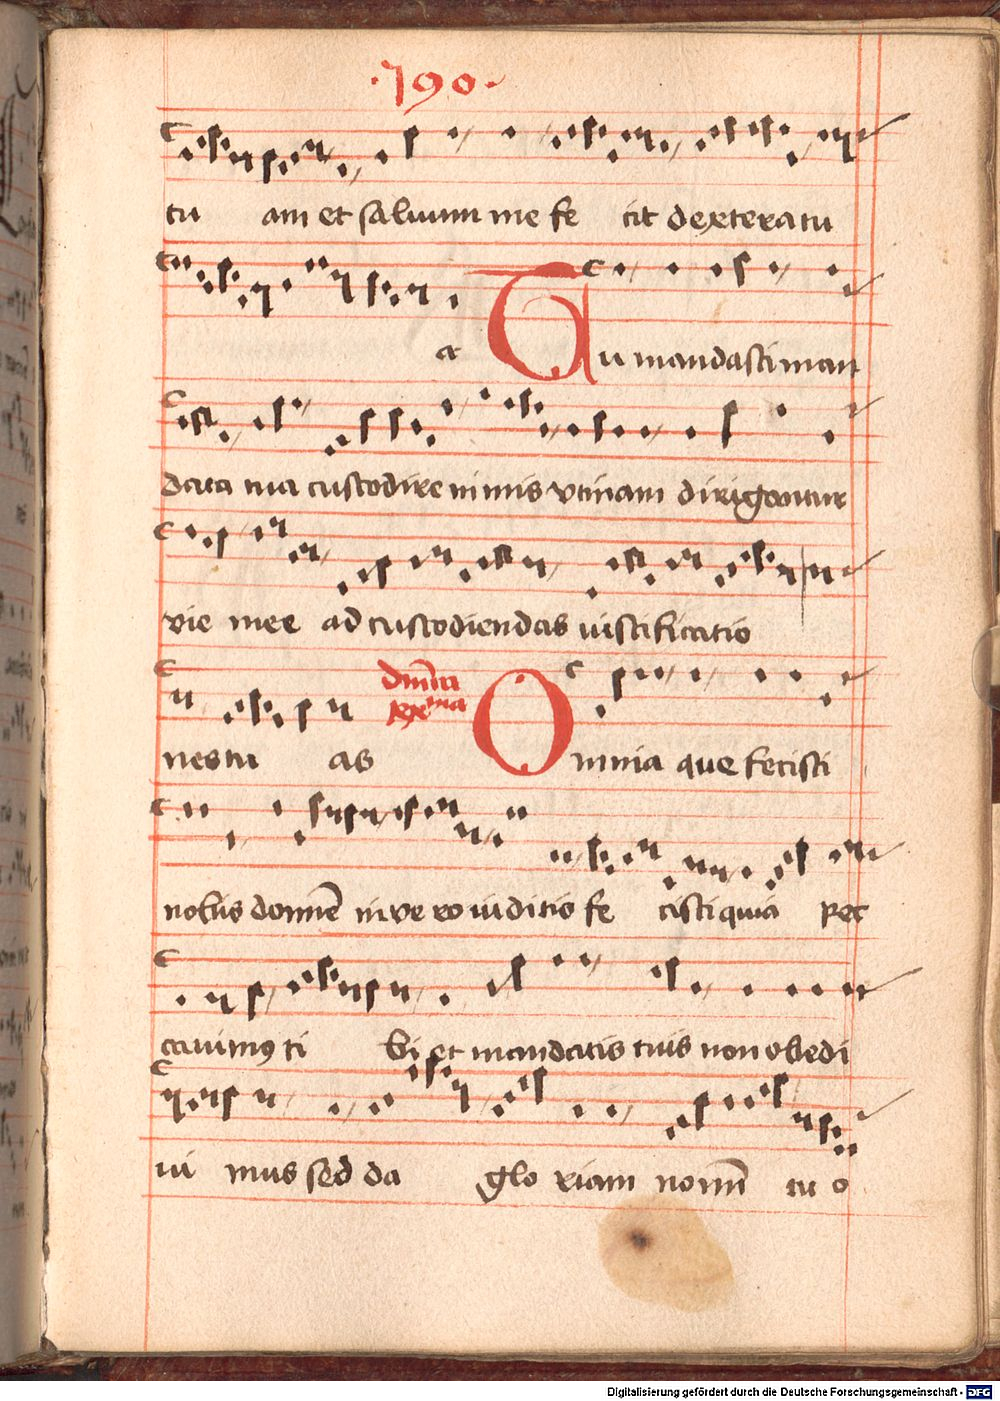 ·790·
tu am et saluum me fe cit dextera tu
a Tu mandasti man
data tua custodire nimis vtinam dirigantur
vie mee ad custodiendas iustificatio
nes tu as dm̄ica xxma Omnia que fecisti
nobis domine in vero iuditio fe cisti quia pec
cauimꝰ ti bi et mandatis tuis non obedi
ui mus sed da glo riam nomī tu o
Digitalisierung gefördert durch die Deutsche Forschungsgemeinschaft - DFG